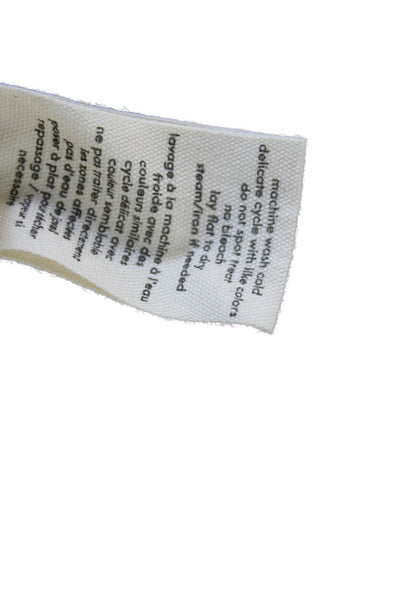 machine wash cold
delicate cycle with like colors
do not spot treat
no bleach
lay flat to dry
steam/iron if needed
lavage à la machine à l'eau
froide avec des
couleurs similaires
cycle délicat avec
couleur semblable
ne pas traiter directement
les zones affectées
pas d'eau de javel
poser à plat pour sécher
repassage / vapeur si
nécessaire